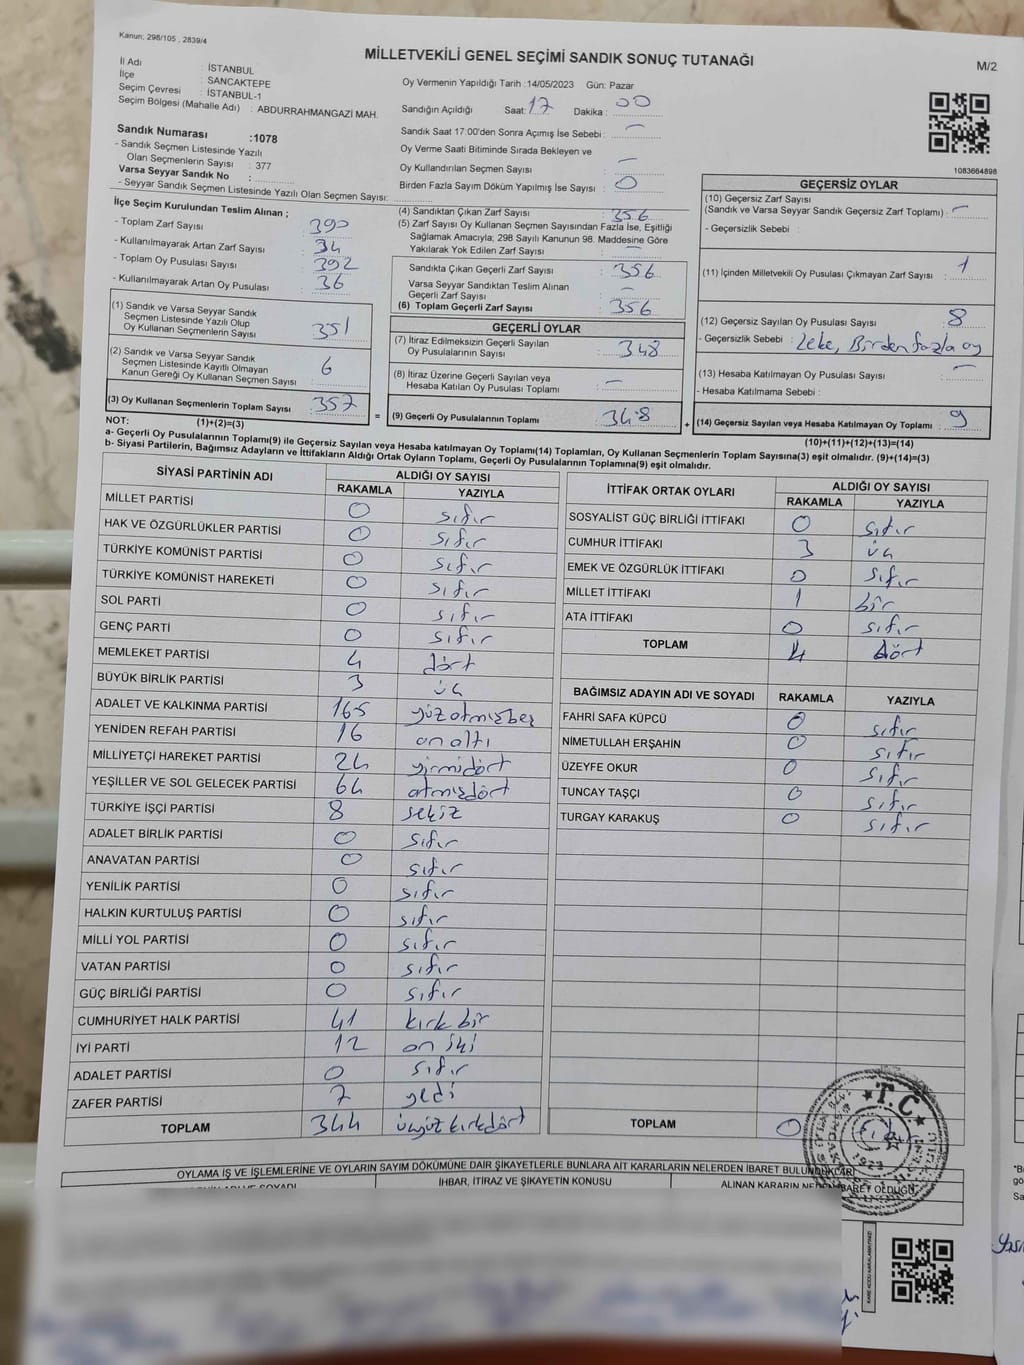 Kanun; 298/105 , 2839/4
MİLLETVEKİLİ GENEL SEÇİMİ SANDIK SONUÇ TUTANAĞI
M/2
İl Adı : İSTANBUL
İlçe : SANCAKTEPE
Seçim Çevresi : İSTANBUL-1
Seçim Bölgesi (Mahalle Adı) : ABDURRAHMANGAZİ MAH.
Sandık Numarası :1078
- Sandık Seçmen Listesinde Yazılı
Olan Seçmenlerin Sayısı : 377
Varsa Seyyar Sandık No :
- Seyyar Sandık Seçmen Listesinde Yazılı Olan Seçmen Sayısı:
Oy Vermenin Yapıldığı Tarih :14/05/2023 Gün: Pazar
Sandığın Açıldığı Saat: 17 Dakika : 00
Sandık Saat 17:00'den Sonra Açımış İse Sebebi : -
Oy Verme Saati Bitiminde Sırada Bekleyen ve
Oy Kullandırılan Seçmen Sayısı : -
Birden Fazla Sayım Döküm Yapılmış İse Sayısı : 0
1083664898
İlçe Seçim Kurulundan Teslim Alınan ;
- Toplam Zarf Sayısı : 390
- Kullanılmayarak Artan Zarf Sayısı : 34
- Toplam Oy Pusulası Sayısı : 392
- Kullanılmayarak Artan Oy Pusulası : 36
(1) Sandık ve Varsa Seyyar Sandık
Seçmen Listesinde Yazılı Olup
Oy Kullanan Seçmenlerin Sayısı : 351
(2) Sandık ve Varsa Seyyar Sandık
Seçmen Listesinde Kayıtlı Olmayan
Kanun Gereği Oy Kullanan Seçmen Sayısı : 6
(3) Oy Kullanan Seçmenlerin Toplam Sayısı : 357
(4) Sandıktan Çıkan Zarf Sayısı : 356
(5) Zarf Sayısı Oy Kullanan Seçmen Sayısından Fazla İse, Eşitliği
Sağlamak Amacıyla; 298 Sayılı Kanunun 98. Maddesine Göre
Yakılarak Yok Edilen Zarf Sayısı : -
Sandıkta Çıkan Geçerli Zarf Sayısı : 356
Varsa Seyyar Sandıktan Teslim Alınan
Geçerli Zarf Sayısı : -
(6) Toplam Geçerli Zarf Sayısı : 356
GEÇERLİ OYLAR
(7) İtiraz Edilmeksizin Geçerli Sayılan
Oy Pusulalarının Sayısı : 348
(8) İtiraz Üzerine Geçerli Sayılan veya
Hesaba Katılan Oy Pusulası Toplamı : -
= (9) Geçerli Oy Pusulalarının Toplamı : 348
GEÇERSİZ OYLAR
(10) Geçersiz Zarf Sayısı
(Sandık ve Varsa Seyyar Sandık Geçersiz Zarf Toplamı) : -
- Geçersizlik Sebebi :
(11) İçinden Milletvekili Oy Pusulası Çıkmayan Zarf Sayısı : 1
(12) Geçersiz Sayılan Oy Pusulası Sayısı : 8
- Geçersizlik Sebebi : Leke, Birden fazla oy
(13) Hesaba Katılmayan Oy Pusulası Sayısı : -
- Hesaba Katılmama Sebebi :
+ (14) Geçersiz Sayılan veya Hesaba Katılmayan Oy Toplamı : 9
NOT: (1)+(2)=(3)
(10)+(11)+(12)+(13)=(14)
a- Geçerli Oy Pusulalarının Toplamı(9) ile Geçersiz Sayılan veya Hesaba katılmayan Oy Toplamı(14) Toplamları, Oy Kullanan Seçmenlerin Toplam Sayısına(3) eşit olmalıdır. (9)+(14)=(3)
b- Siyasi Partilerin, Bağımsız Adayların ve İttifakların Aldığı Ortak Oyların Toplamı, Geçerli Oy Pusulalarının Toplamına(9) eşit olmalıdır.
SİYASİ PARTİNİN ADI ALDIĞI OY SAYISI
RAKAMLA YAZIYLA
MİLLET PARTİSİ 0 sıfır
HAK VE ÖZGÜRLÜKLER PARTİSİ 0 sıfır
TÜRKİYE KOMÜNİST PARTİSİ 0 sıfır
TÜRKİYE KOMÜNİST HAREKETİ 0 sıfır
SOL PARTİ 0 sıfır
GENÇ PARTİ 0 sıfır
MEMLEKET PARTİSİ 4 dört
BÜYÜK BİRLİK PARTİSİ 3 üç
ADALET VE KALKINMA PARTİSİ 165 yüzatmışbeş
YENİDEN REFAH PARTİSİ 16 onaltı
MİLLİYETÇİ HAREKET PARTİSİ 24 yirmidört
YEŞİLLER VE SOL GELECEK PARTİSİ 64 atmışdört
TÜRKİYE İŞÇİ PARTİSİ 8 sekiz
ADALET BİRLİK PARTİSİ 0 sıfır
ANAVATAN PARTİSİ 0 sıfır
YENİLİK PARTİSİ 0 sıfır
HALKIN KURTULUŞ PARTİSİ 0 sıfır
MİLLİ YOL PARTİSİ 0 sıfır
VATAN PARTİSİ 0 sıfır
GÜÇ BİRLİĞİ PARTİSİ 0 sıfır
CUMHURİYET HALK PARTİSİ 41 kırk bir
İYİ PARTİ 12 on iki
ADALET PARTİSİ 0 sıfır
ZAFER PARTİSİ 7 yedi
TOPLAM 344 üçyüzkırkdört
İTTİFAK ORTAK OYLARI ALDIĞI OY SAYISI
RAKAMLA YAZIYLA
SOSYALİST GÜÇ BİRLİĞİ İTTİFAKI 0 sıfır
CUMHUR İTTİFAKI 3 üç
EMEK VE ÖZGÜRLÜK İTTİFAKI 0 sıfır
MİLLET İTTİFAKI 1 bir
ATA İTTİFAKI 0 sıfır
TOPLAM 4 dört
BAĞIMSIZ ADAYIN ADI VE SOYADI RAKAMLA YAZIYLA
FAHRİ SAFA KÜPCÜ 0 sıfır
NİMETULLAH ERŞAHİN 0 sıfır
ÜZEYFE OKUR 0 sıfır
TUNCAY TAŞÇI 0 sıfır
TURGAY KARAKUŞ 0 sıfır
TOPLAM 0 sıfır
T.C
1923
OYLAMA İŞ VE İŞLEMLERİNE VE OYLARIN SAYIM DÖKÜMÜNE DAİR ŞİKAYETLERLE BUNLARA AİT KARARLARIN NELERDEN İBARET BULUNDUKLARI
İHBAR, İTİRAZ VE ŞİKAYETİN KONUSU
ALINAN KARARIN NEDEN İBARET OLDUĞU